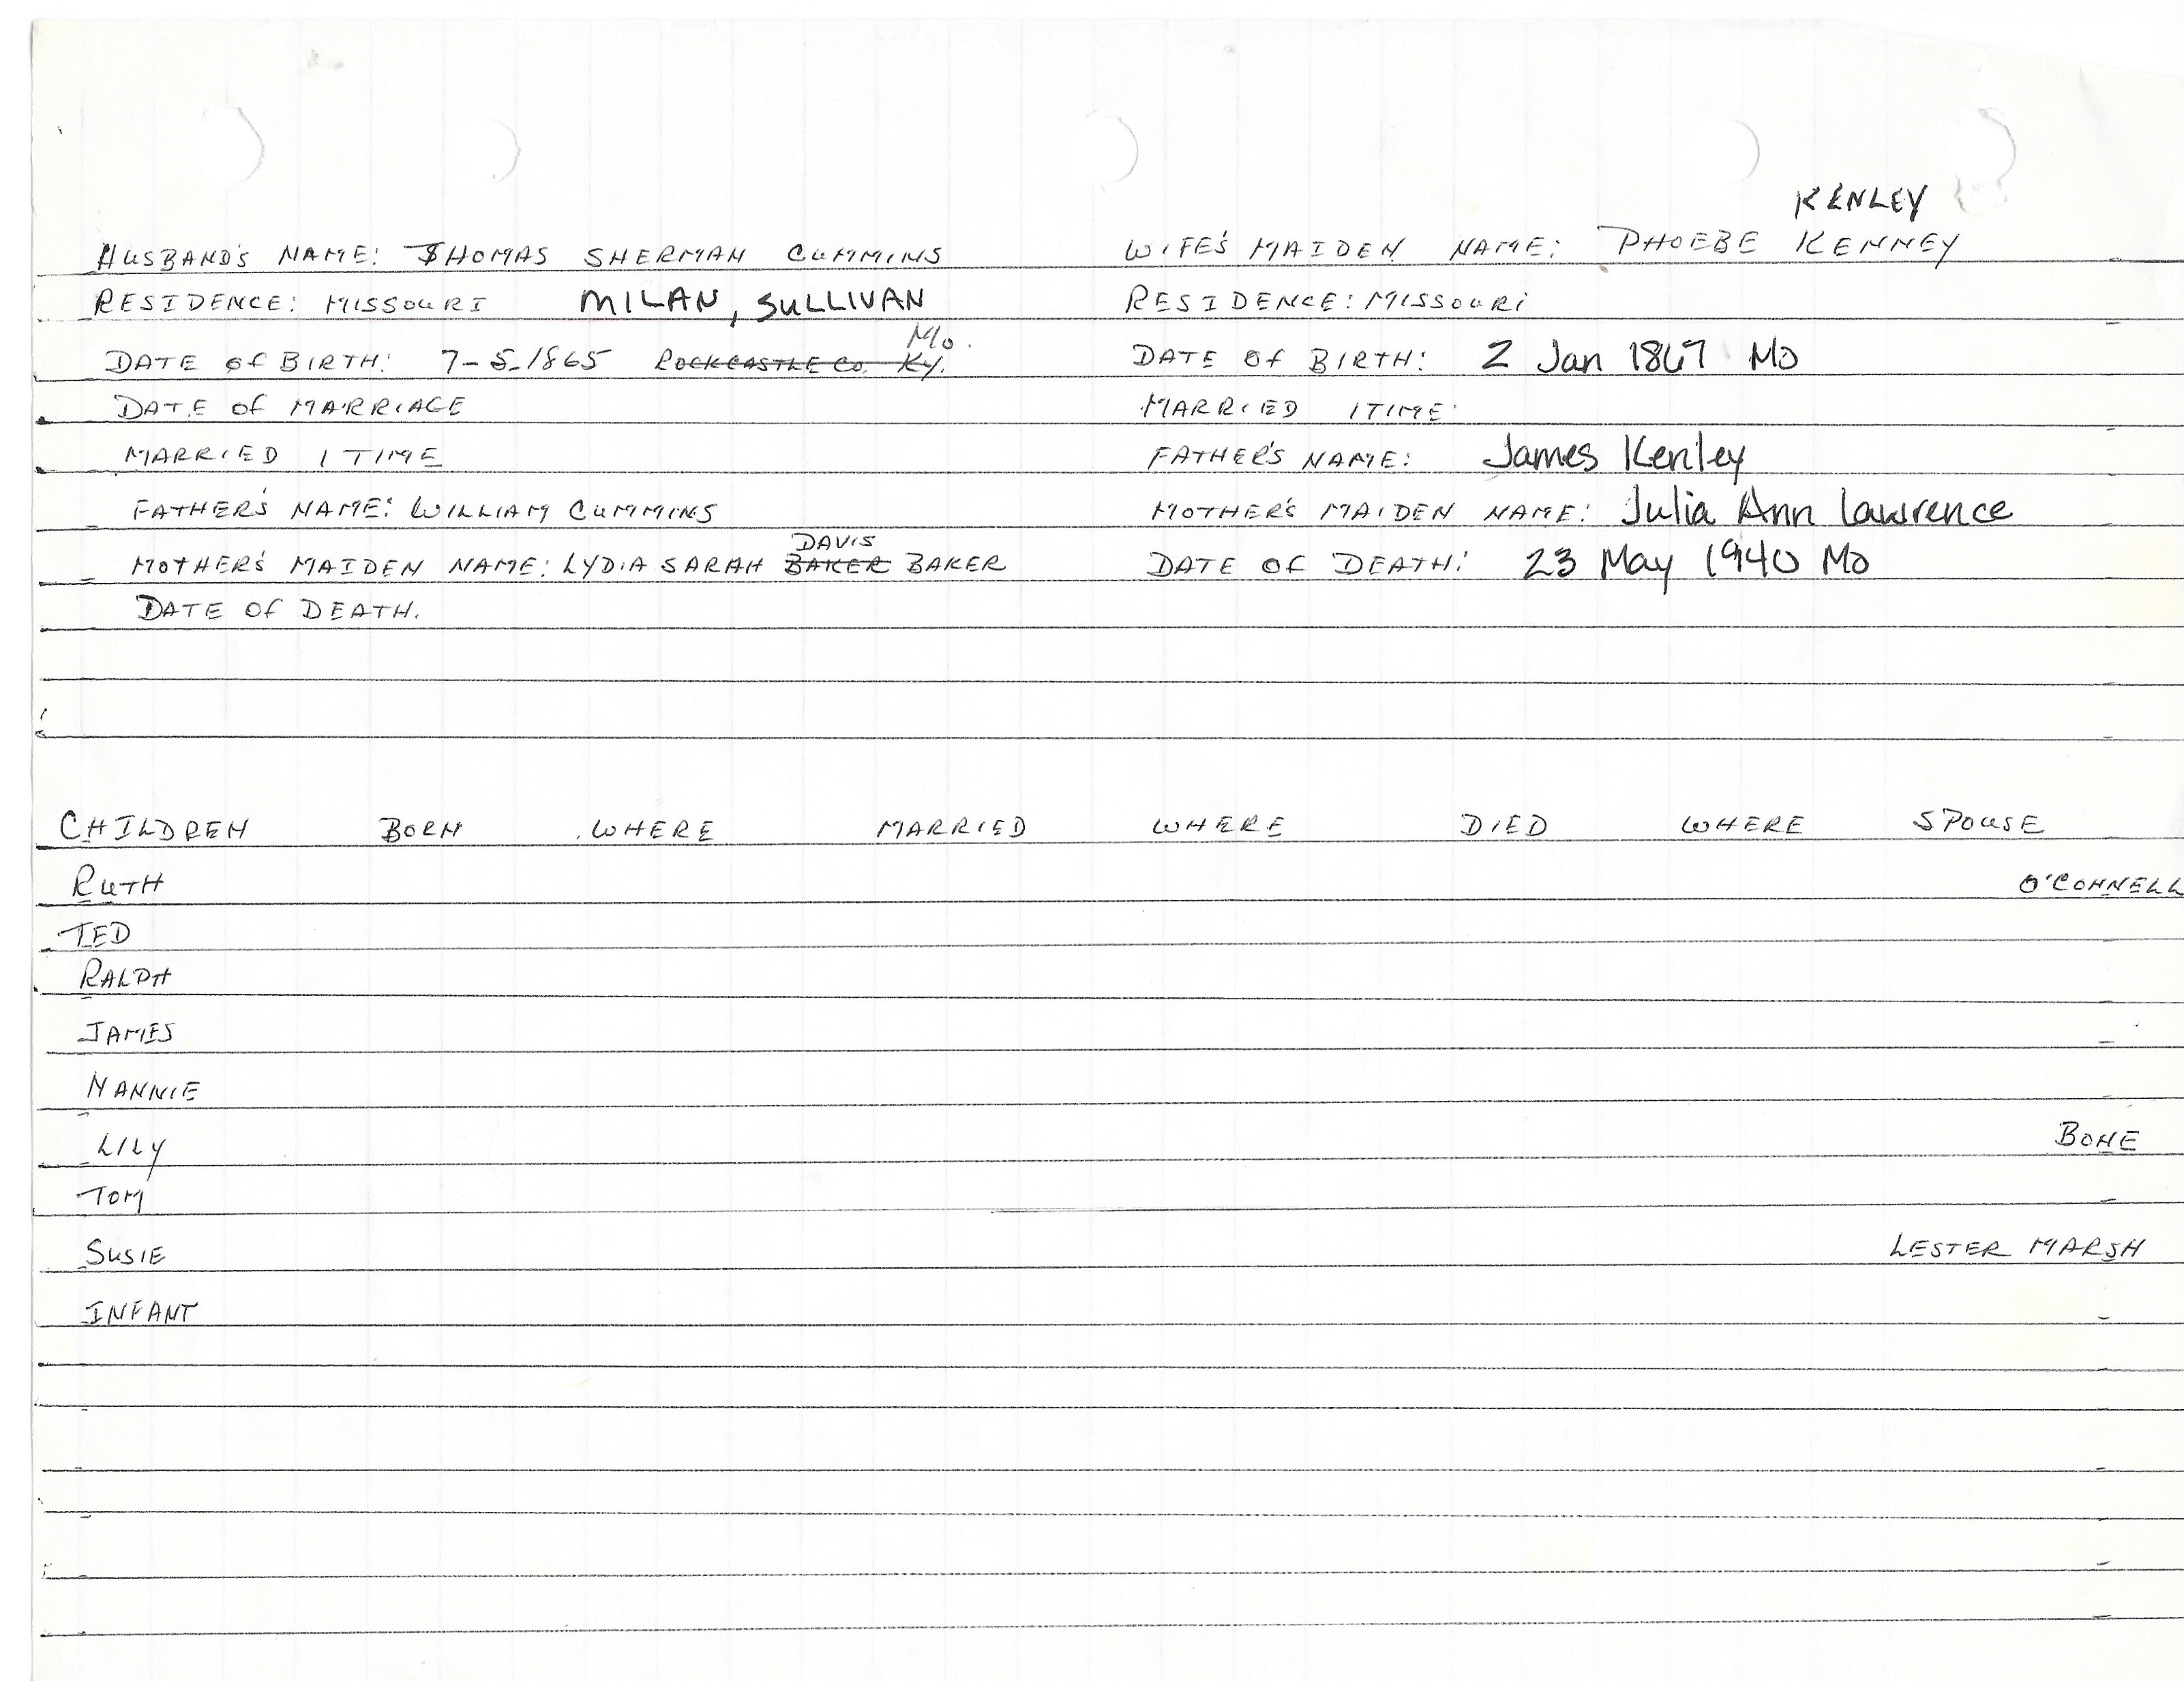 KENLEY
HUSBAND'S NAME: THOMAS SHERMAN CUMMINS WIFE'S MAIDEN NAME: PHOEBE KENNEY
RESIDENCE: MISSOURI MILAN, SULLIVAN RESIDENCE: MISSOURI
Mo.
DATE OF BIRTH: 7-5-1865 ROCKCASTLE CO. KY. DATE OF BIRTH: 2 Jan 1867 Mo
DATE OF MARRIAGE MARRIED 1 TIME
MARRIED 1 TIME FATHER'S NAME: James Kenley
FATHER'S NAME: WILLIAM CUMMINS MOTHER'S MAIDEN NAME: Julia Ann Lawrence
DAVIS
MOTHER'S MAIDEN NAME: LYDIA SARAH BAKER BAKER DATE OF DEATH: 23 May 1940 Mo
DATE OF DEATH.
CHILDREN BORN WHERE MARRIED WHERE DIED WHERE SPOUSE
RUTH O'CONNELL
TED
RALPH
JAMES
NANNIE
LILY BONE
TOM
SUSIE LESTER MARSH
INFANT